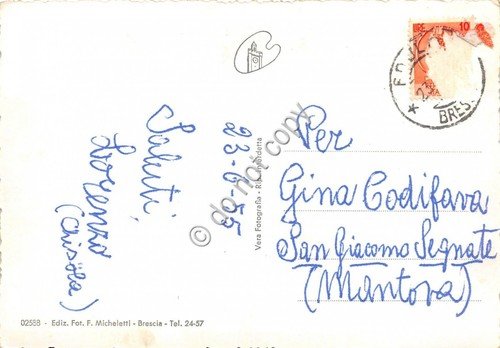 10
BRES
Saluti,
Lorenzo
(Chisöla)
23-6-55
Vera Fotografia - Rip. Interdetta
do not copy
Per
Gina Codifava
San Giacomo Segnate
(Mantova)
02588 - Ediz. Fot. F. Micheletti - Brescia - Tel. 24-57